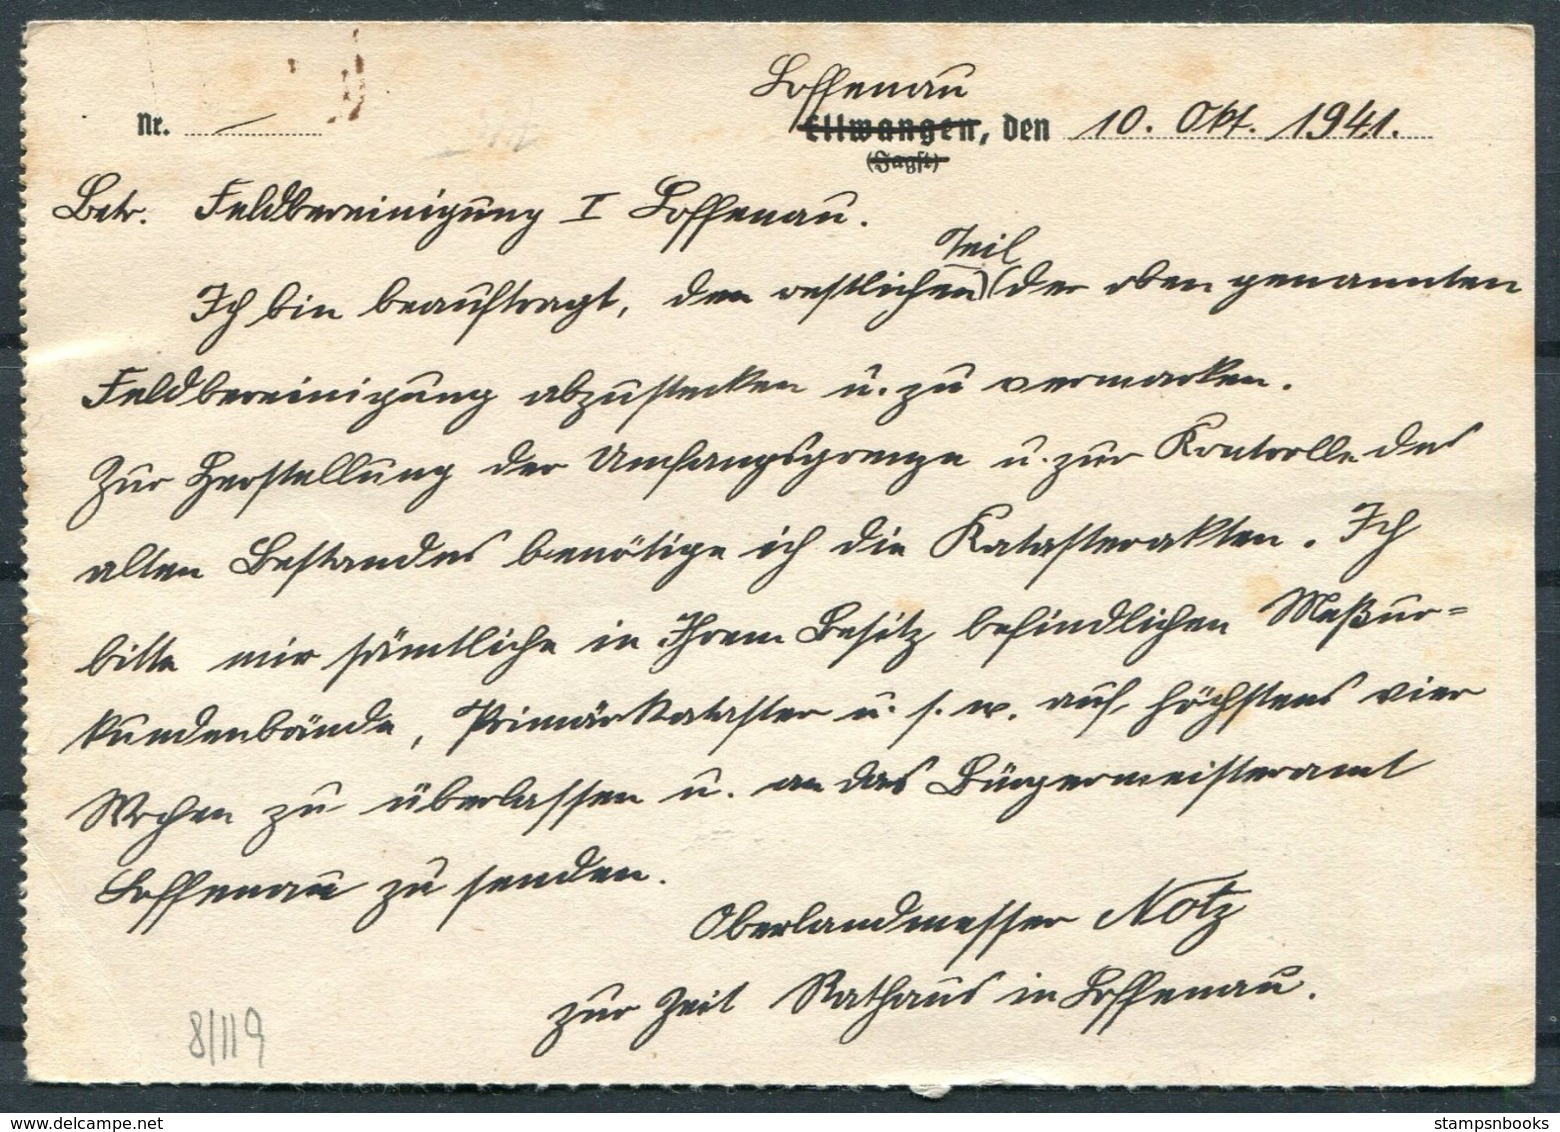 Loffenau
Nr. Ellwangen, den 10. Okt. 1941.
(Jagst)
Betr. Feldbereinigung I Loffenau.
Teil
Ich bin beauftragt, den westlichen (der oben genannten
Feldbereinigung abzustecken u. zu vermarken.
Zur Herstellung der Umfangsgrenze u. zur Kontrolle des
alten Bestandes benötige ich die Katasterakten. Ich
bitte mir sämtliche in Ihrem Besitz befindlichen Meßur=
kundenbände, Primärkataster u. s. w. auf höchstens vier
Wochen zu überlassen u. an das Bürgermeisteramt
Loffenau zu senden.
Oberlandmesser Notz
zur Zeit Rathaus in Loffenau.
8/119
stampsnbooks